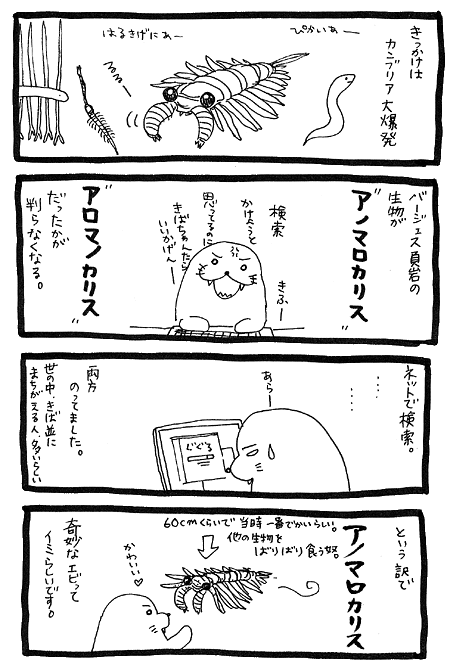 きっかけは
カンブリア大爆発
ぴかいあー
はるきげにあー
るるー
バージェス頁岩の
生物が
"アノマロカリス"
検索
かけようと
思ってるのに
きばちゃんたら
いいかげんー
きふー
"アロマノカリス"
だったかが
判らなくなる。
ネットで検索。
‥‥
‥‥
あらー
ぐぐる
両方
のってました。
世の中、きば並に
まちがえる人、多いらしい
という訳で
アノマロカリス
60cmくらいで当時一番でかいらしい。
他の生物を
ばりばり食う奴。
かわいい♡
奇妙なエビって
イミらしいです。